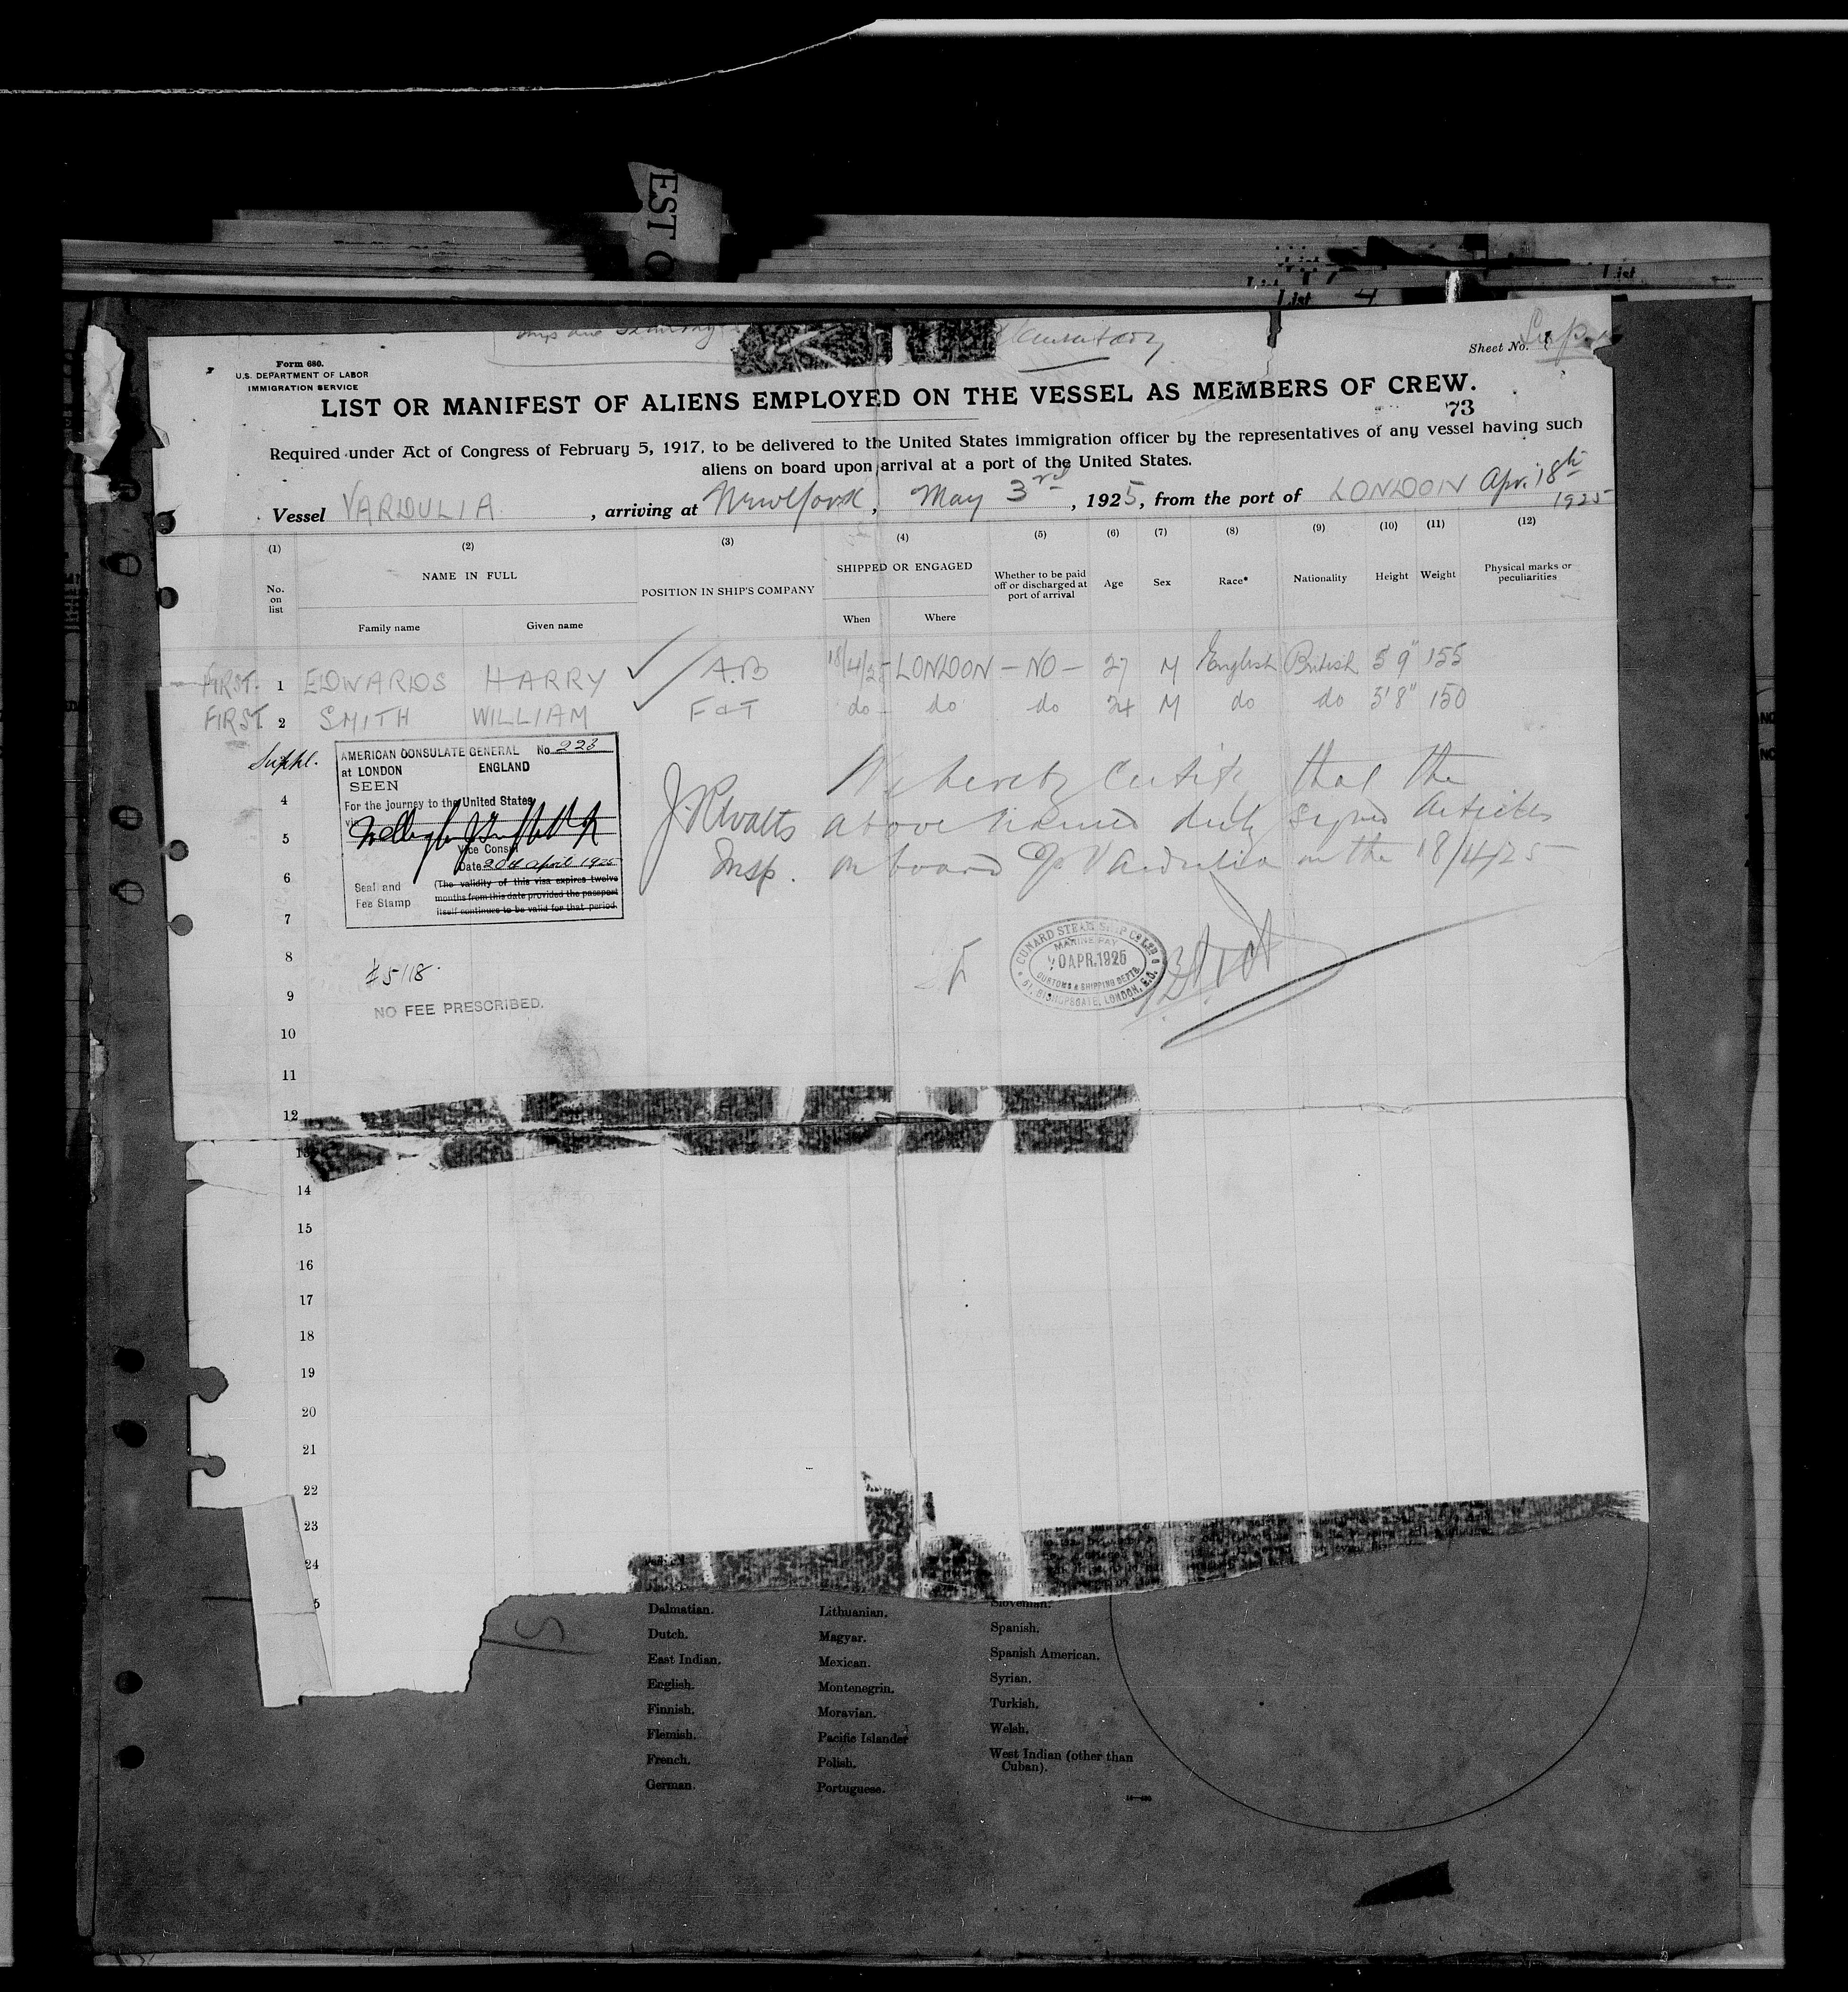 EST
List
List 4
List
Sheet No.
Form 680.
U.S. DEPARTMENT OF LABOR
IMMIGRATION SERVICE
LIST OR MANIFEST OF ALIENS EMPLOYED ON THE VESSEL AS MEMBERS OF CREW.
73
Required under Act of Congress of February 5, 1917, to be delivered to the United States immigration officer by the representatives of any vessel having such
aliens on board upon arrival at a port of the United States.
Vessel VARDULIA, arriving at New York, May 3rd, 1925, from the port of LONDON Apr. 18th
1925
(1) (2) (3) (4) (5) (6) (7) (8) (9) (10) (11) (12)
No. on list NAME IN FULL POSITION IN SHIP'S COMPANY SHIPPED OR ENGAGED Whether to be paid off or discharged at port of arrival Age Sex Race* Nationality Height Weight Physical marks or peculiarities
Family name Given name When Where
FIRST. 1 EDWARDS HARRY A.B 18/4/25 LONDON - NO - 27 M English British 5'9" 155
FIRST. 2 SMITH WILLIAM F&T do do do 24 M do do 5'8" 150
Suppl.
AMERICAN CONSULATE GENERAL No. 223
at LONDON ENGLAND
SEEN
For the journey to the United States
via
Vice Consul
Date 20th April 1925
Seal and
Fee Stamp
(The validity of this visa expires twelve
months from this date provided the passport
itself continues to be valid for that period.
We hereby certify that the
above named duly signed articles
on board Vardulia on the 18/4/25
J.R. Watts
Insp.
4
5
6
7
8
9
10
11
12
13
14
15
16
17
18
19
20
21
22
23
24
5
#5118.
NO FEE PRESCRIBED.
CUNARD STEAM SHIP Co LTD
MARINE PAY
20 APR. 1925
CUSTOMS & SHIPPING DEPTS
51, BISHOPSGATE, LONDON, E.C.
Dalmatian.
Dutch.
East Indian.
English.
Finnish.
Flemish.
French.
German.
Lithuanian.
Magyar.
Mexican.
Montenegrin.
Moravian.
Pacific Islander
Polish.
Portuguese.
Slovenian.
Spanish.
Spanish American.
Syrian.
Turkish.
Welsh.
West Indian (other than
Cuban).